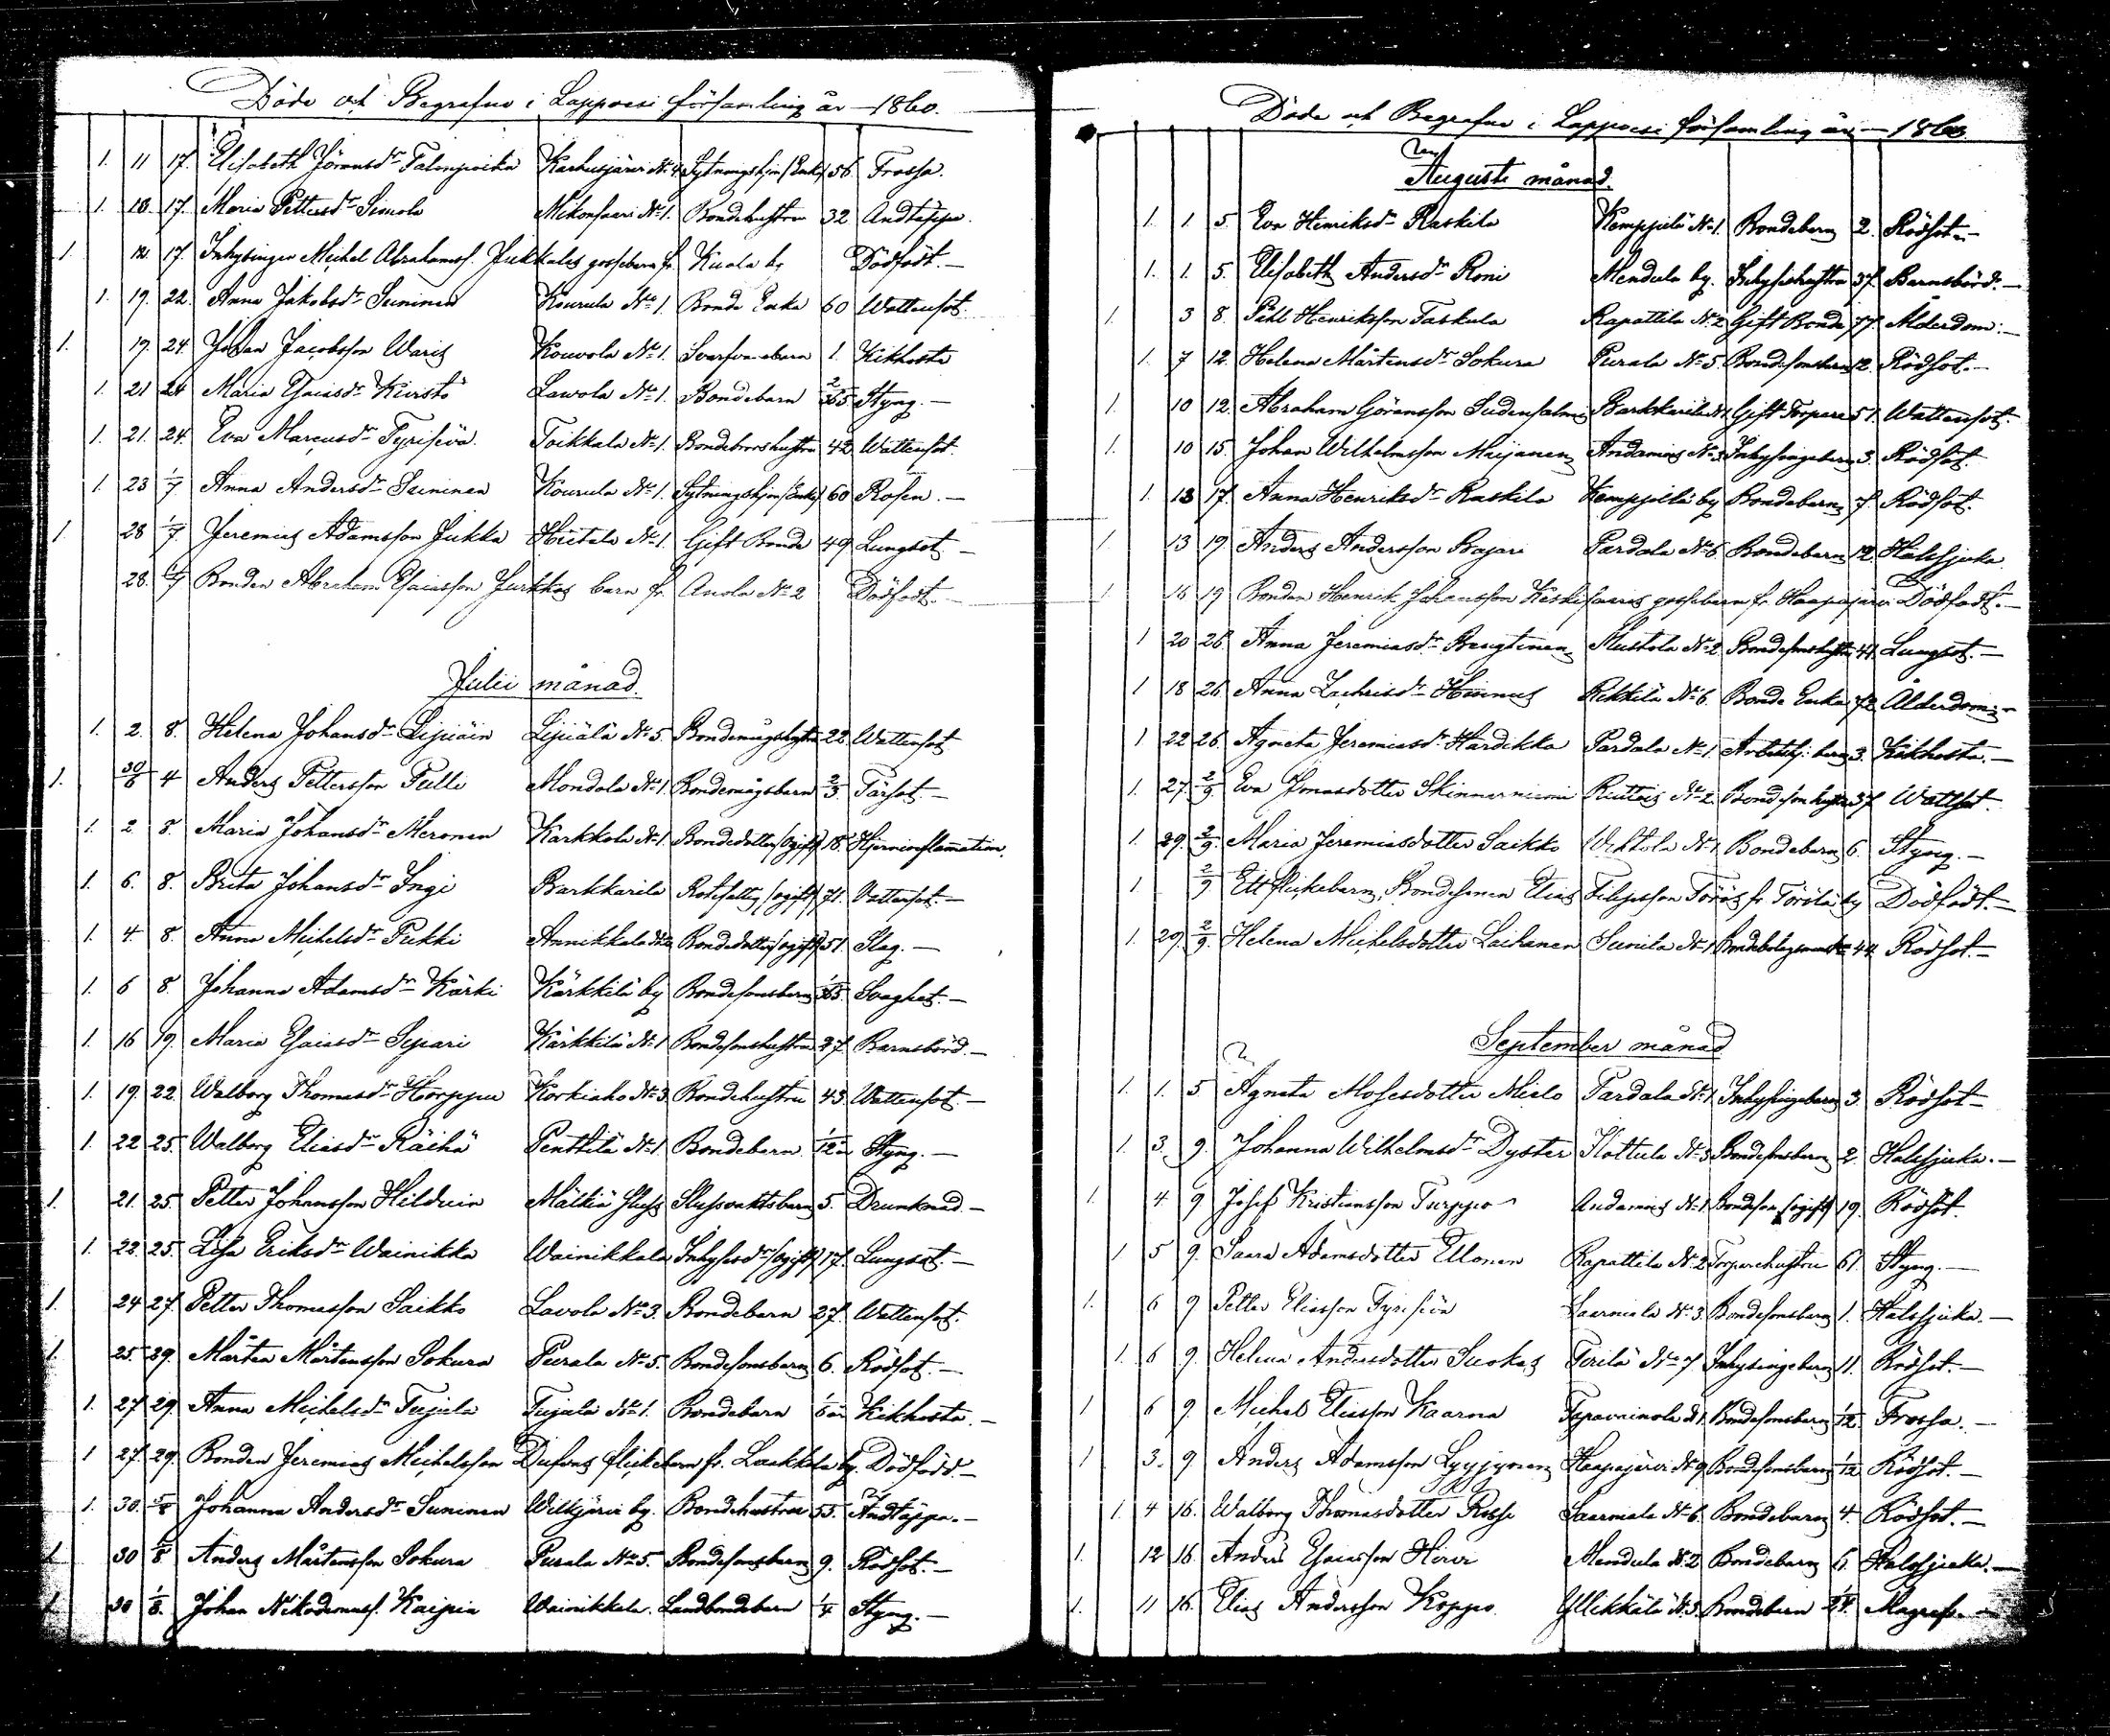 Döde och Begrafne i Lappvesi församling år 1860.
1. 11 17. Elisabeth Jöransdr Talonpoika Karhusjärvi No 4. Sytningshjon (Enka) 56 Frossa.
1. 18. 17. Maria Pettersdr Simola Mikonsaari No 1. Bondehustru 32 Andtäppa.
1. 17. Inhysingen Michel Abrahamss. Jukkales gossebarn fr. Kuala by Dödfödt.—
1. 19. 22. Anna Jakobsdr Suninen Kourula No 1. Bonde Enka 60 Wattensot.
1. 19. 24. Johan Jacobsson Waris Kouvola No 1. barn 1. Kikhosta
1. 21 24 Maria Esaiasdr Kirsto Lawola No 1. Bondebarn Styng.—
1. 21. 24. Eva Marcusdr Tyrisevä. Toikkala No 1. Bondebrorshustru 42 Wattensot.
1. 23 1/7 Anna Andersdr Suninen Kourula No 1. Sytningshjon (Enka) 60 Rosen.—
1. 28 1/7. Jeremias Adamsson Jukka Hietala No 1. Gift Bonde 49 Lungsot—
28. 1/7 Bonden Abraham Esaiasson Jurkkas barn fr. Anola No 2 Dödfödt.—
Julii månad.
1. 2. 8. Helena Johansdr Lipiäin Lipiälä No 5. Bondemågshustru 22. Wattensot
1. 30/6 4 Anders Pettersson Tulli Mondola No 1. Bondemågsbarn 2/3. Tärsot.—
1. 2 8. Maria Johansdr Meronen Karkkola No 1. Bondedotter (ogift) 18. Hjerninflamation.
1. 6. 8. Brita Johansdr Ingi Parkkarila Rotefattig (ogift) 71. Vattensot.—
1. 4. 8. Anna Michelsdr Pukki Annikkala Bondedotter (ogift) 51. Slag.—
1. 6 8. Johanna Adamsdr Kärki Kärkkilä by Bondesonsbarn Svaghet.—
1. 16 19. Maria Esaiasdr Sipari Kärkkilä No 1 Bondesonshustru 27. Barnsbörd.—
1. 19. 22. Walborg Thomasdr Horppu Korkiaho No 3. Bondehustru 43. Wattensot.—
1. 22 25. Walborg Eliasdr Räihä Penttilä No 1. Bondebarn 1/12 Styng.—
1. 21. 25. Petter Johansson Hilduin Mälkiä Sluss Slussvaktsbarn 5. Drunknad.—
1. 22. 25. Lisa Eriksdr Wainikka Wainikkala Inhysesdr (ogift) 17. Lungsot.—
1. 24 27. Petter Thomasson Saikko Lavola No 3. Bondebarn 27. Wattensot.
1. 25. 29. Mårten Mårtensson Sokura Purala No 5. Bondesonsbarn 6. Rödsot.—
1. 27 29. Anna Michelsdr Tujula Tujula No 1. Bondebarn Kikhosta.—
1 27. 29. Bonden Jeremias Michelsson Dufvas flickebarn fr. Laukkala by. Dödfödd.—
1. 30. 5/8 Johanna Andersdr Suninen Wilkjärvi by. Bondehustru 55. Andtäppa.—
1. 30 5/8 Anders Mårtensson Sokura Purala No 5. Bondesonsbarn 9. Rödsot.—
1. 30 1/8. Johan Nikodemuss. Kaipia Wainikkala. Landbondebarn 1/4 Styng.—
Döde och Begrafne i Lappvesi församling år 1860.
Augusti månad.
1. 1 5. Eva Henriksdr Raskila Kemppilä No 1. Bondebarn 2. Rödsot.—
1. 1. 5. Elisabeth Andersdr Roni Mendula by. Inhyseshustru 37. Barnsbörd.—
1. 3 8. Påhl Henriksson Taskula Rapattila No 2 Gift Bonde 77. Ålderdom.—
1. 7 12. Helena Mårtensdr Sokura Purala No 5. Bondesonsbarn 12. Rödsot.—
1. 10 12. Abraham Göransson Sudensalmi Parkkarila No 1. Gift Torpare 51. Wattensot.
1. 10 15. Johan Wilhelmsson Miijanen Andamius No 3 Inhysingebarn 3. Rödsot.
1. 13 17. Anna Henriksdr Raskila Kemppilä by Bondebarn 7. Rödsot.
1 13 19 Anders Andersson Pajari Pardala No 6. Bondebarn 12. Halssjuka.
1. 16 19 Bonden Henrik Johansson Keskisaaris gossebarn fr. Haapajärvi Dödfödt.—
1 20 26. Anna Jeremiasdr Pengtinen Mustola No 2 Bondesonshustru 41. Lungsot.—
1 18 26. Anna Zachrisdr Hinnus Rikkilä No 6. Bonde Enka 72 Ålderdom.—
1 22 26. Agneta Jeremiasdr Hardikka Pardala No 1. barn 3. Kikhosta.—
1. 27. 2/9. Eva Jonasdotter Skinnarniemi Riuttas No 2. Bondesonhustru 37. Wattsot.
1. 29. 2/9. Maria Jeremiasdotter Saikko No 1 Bondebarn 6. Styng.—
1. 2/9 Ett flickebarn, Bondesonen Elias Filipsson Törös fr. Törölä by Dödfödt.—
1. 29. 2/9. Helena Michelsdotter Laihanen Sunila No 1 44. Rödsot.—
September månad
1. 1. 5. Agneta Mosesdotter Mielo Pardala No 1 Inhysingebarn 3. Rödsot—
1. 3. 9. Johanna Wilhelmsdr Dyster Hottula No 3 Bondesonsbarn 2. Halssjuka.—
1. 4 9 Josef Kristiansson Turppo Andamius No 1 Bondeson (ogift) 19. Rödsot.
1 5 9. Saara Adamsdotter Ellonen Rapattila No 2 Torparehustru 61. Styng.—
1. 6 9 Petter Eliasson Tyrisevä Saarniala No 3. Bondesonsbarn 1. Halssjuka.—
1. 6 9. Helena Andersdotter Suokas Terilä No 7 Inhysingebarn 11. Rödsot.—
1 6 9. Michel Eliasson Kaarna Tapavainola No 1. Bondesonsbarn 1/12 Frossa.—
1 3. 9 Anders Adamsson Lyyjynen Haapajärvi No 9 Bondesonsbarn 1/12 Rödsot.—
1. 4 16. Walborg Thomasdotter Rosse Saarniala No 6. Bondebarn 4. Rödsot.—
1. 12 16. Anders Esaiasson Hirvi Mendula No 2 Bondebarn 6 Halssjuka.—
1. 11 16. Elias Andersson Koppo. Yllikkälä No 3. Bondebarn Magref.—